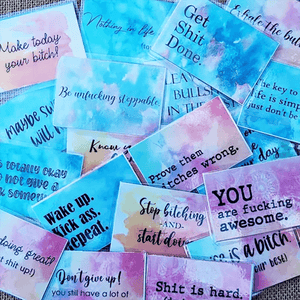 Make today
your bitch!
Nothing in life
Get
Shit
Done.
Be unfucking stoppable
LEAVE
BULLS
IN THE
the key to
life is simple
just don't be
Maybe
will
Know
Prove them
bitches wrong.
totally okay
not give a
Wake up.
Kick ass.
Repeat.
Stop bitching
-AND-
start doin
YOU
are fucking
awesome.
doing great!
shit up!)
is a bitch
Don't give up!
you still have a lot of
Shit is hard.